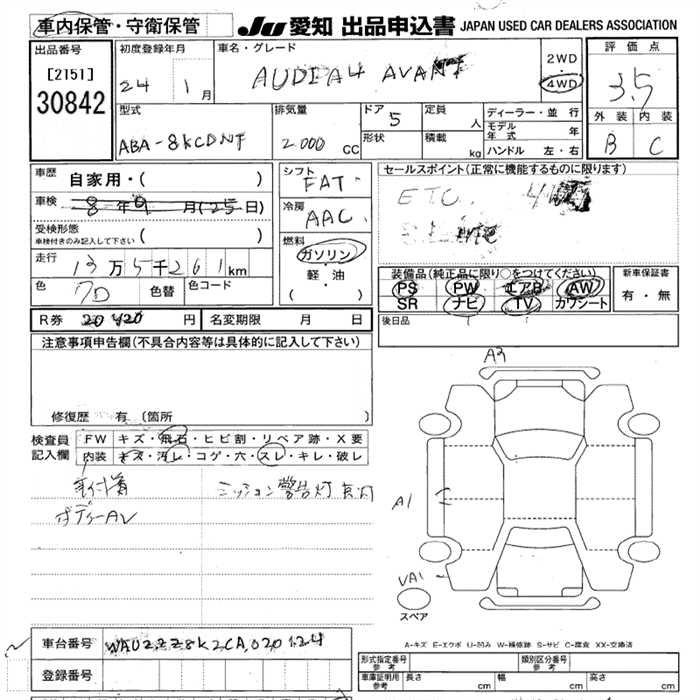 車内保管・守衛保管 JU 愛知 出品申込書 JAPAN USED CAR DEALERS ASSOCIATION
出品番号 初度登録年月 車名・グレード 2WD・4WD 評価点
[2151] 24 1月 AUDI A4 AVANT 3.5
30842
型式 排気量 ドア 5 定員 人 ディーラー・並行 外装 内装
ABA-8KCDNF 2000 CC 形状 積載 kg モデル年式 年 B C
ハンドル 左・右
車歴 自家用・( ) シフト FAT セールスポイント(正常に機能するものに限ります)
車検 8年9月(25日) 冷房 AAC ETC
受検形態 車検付きのみ記入して下さい ( )
走行 13万5千261km 燃料 ガソリン・軽・油 ( )
装備品(純正品に限り○をつけてください) 新車保証書
色 7D 色替 色コード PS PW エアB AW 有・無
SR ナビ TV カワシート
R券 円 名変期限 月 日 後日品
注意事項申告欄(不具合内容等は具体的に記入して下さい)
A3
修復歴 有(箇所 )
検査員記入欄 FW キズ・飛石・ヒビ割・リペア跡・X要
内装 キズ・汚レ・コゲ・穴・スレ・キレ・破レ
ミッション警告灯
ボディーAV
A1
VA1
スペア
A-キズ E-エクボ U-凹み W-補修跡 S-サビ C-腐食 XX-交換済
車台番号 WAUZZZ8K2CA020124
登録番号
形式指定番号 参考 類別区分番号 参考
車庫証明用 参考 長さ cm 幅 cm 高さ cm